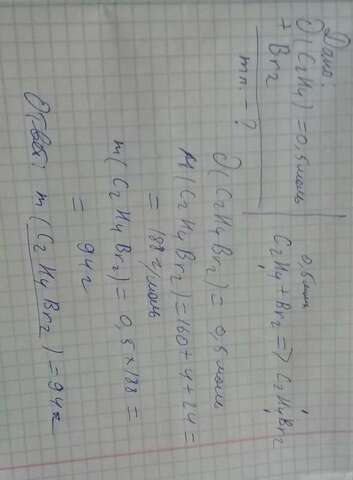 Дано:
υ(C2H4)=0,5моль
+ Br2
mп. - ?
0,5моль
C2H4 + Br2 => C2H4Br2
1 1
υ(C2H4Br2) = 0,5моль
M(C2H4Br2)=160+4+24=
= 188 г/моль
m(C2H4Br2)= 0,5×188=
= 94г
Ответ: m(C2H4Br2)=94г